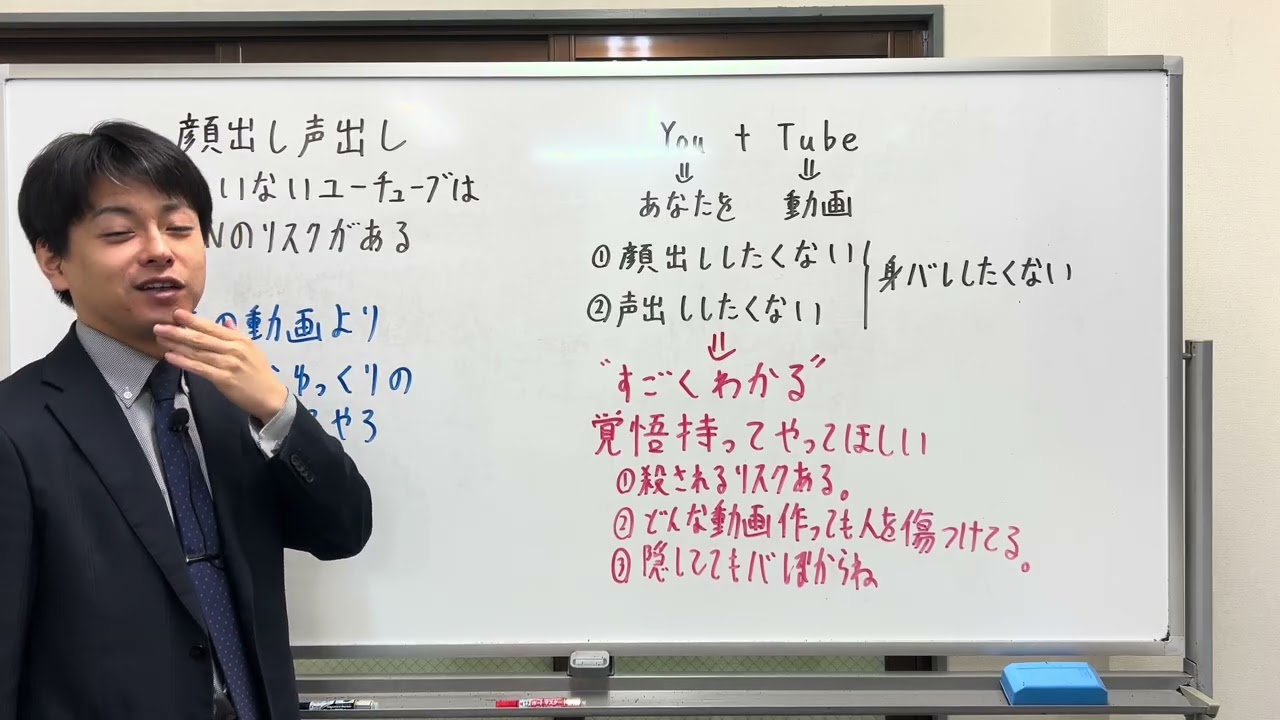 顔出し声出し
いないユーチューブは
Nのリスクがある
の動画より
ゆっくりの
やろ
You + Tube
⇓ ⇓
あなたを 動画
①顔出ししたくない
②声出ししたくない
身バレしたくない
⇓
"すごくわかる"
覚悟持ってやってほしい
①殺されるリスクある。
②どんな動画作っても人を傷つけてる。
③隠しててもバレばからね